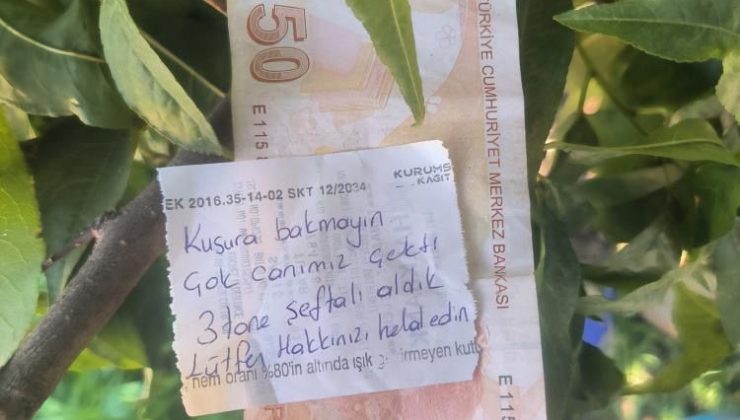 50
E 115
TÜRKİYE CUMHURİYET MERKEZ BANKASI
E 115
KURUMS
KAĞIT
EK 2016.35-14-02 SKT 12/2034
Kusura bakmayın
Çok canımız çekti
3 tane şeftali aldık
Lütfen Hakkınızı helal edin
nem oranı %80'in altında ışık g irmeyen kutu